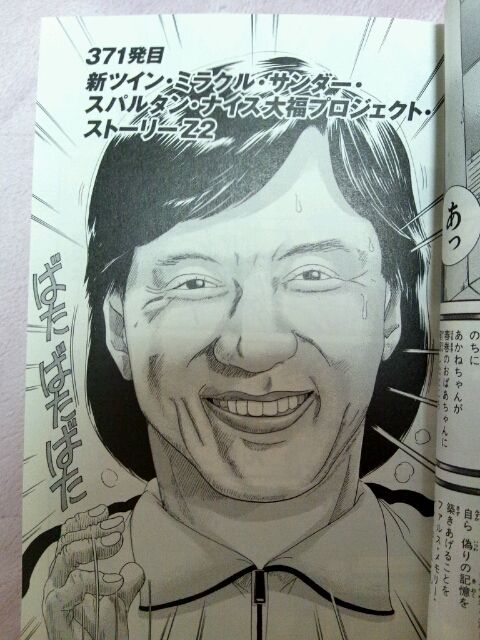 371発目
新ツイン・ミラクル・サンダー・
スパルタン・ナイス大福プロジェクト・
ストーリーZ2
ばたばたばた
あっ
のちに
あかねちゃんが
春巻のおばあちゃんに
自ら偽りの記憶を
築きあげることを
ファルス・メモリー・